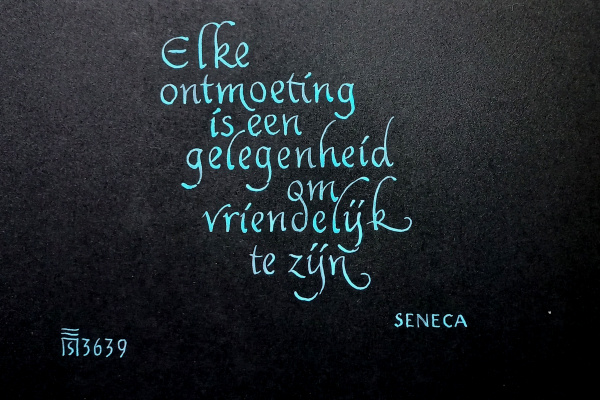 Elke
ontmoeting
is een
gelegenheid
om
vriendelijk
te zijn
SENECA
3639